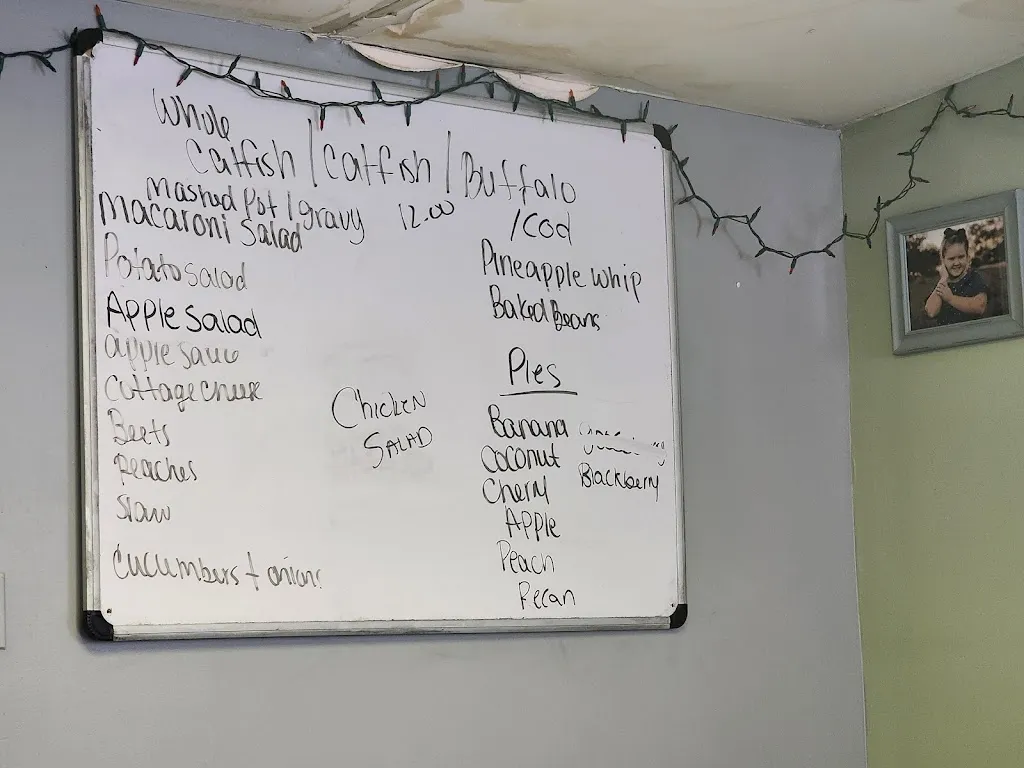 Whole
Catfish / Catfish / Buffalo
/ Cod
Mashed Pot / gravy 12.00
Macaroni Salad
Potato salad
Apple Salad
apple sauce
Cottage cheese
Beets
Peaches
Slaw
Cucumbers + onions
Chicken
SALAD
Pineapple whip
Baked Beans
Pies
Banana
Coconut
Blackberry
Cherry
Apple
Peach
Pecan